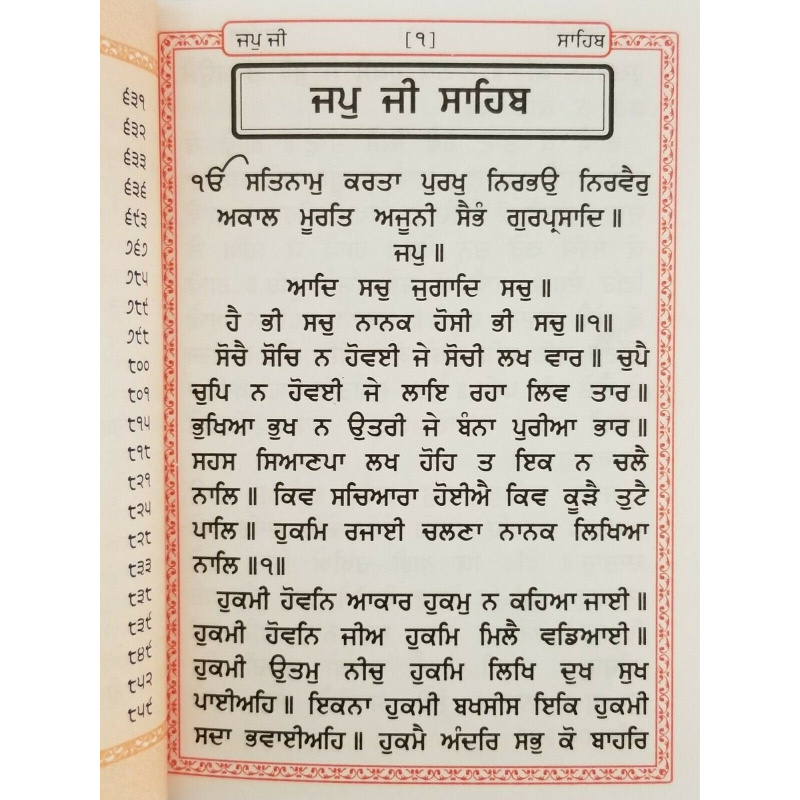 ੬੩੧
੬੩੨
੬੩੩
੬੩੬
੬੯੩
੭੬੭
੭੮੫
੭੮੯
੭੯੯
੮੦੦
੮੦੧
੮੧੫
੮੧੮
੮੨੧
੮੨੫
੮੨੮
੮੩੩
੮੩੮
੮੩੯
੮੪੯
੮੫੨
੮੫੯
ਜਪੁ ਜੀ [੧] ਸਾਹਿਬ
ਜਪੁ ਜੀ ਸਾਹਿਬ
ੴ ਸਤਿਨਾਮੁ ਕਰਤਾ ਪੁਰਖੁ ਨਿਰਭਉ ਨਿਰਵੈਰੁ
ਅਕਾਲ ਮੂਰਤਿ ਅਜੂਨੀ ਸੈਭੰ ਗੁਰਪ੍ਰਸਾਦਿ॥
ਜਪੁ॥
ਆਦਿ ਸਚੁ ਜੁਗਾਦਿ ਸਚੁ॥
ਹੈ ਭੀ ਸਚੁ ਨਾਨਕ ਹੋਸੀ ਭੀ ਸਚੁ॥੧॥
ਸੋਚੈ ਸੋਚਿ ਨ ਹੋਵਈ ਜੇ ਸੋਚੀ ਲਖ ਵਾਰ॥ ਚੁਪੈ
ਚੁਪਿ ਨ ਹੋਵਈ ਜੇ ਲਾਇ ਰਹਾ ਲਿਵ ਤਾਰ॥
ਭੁਖਿਆ ਭੁਖ ਨ ਉਤਰੀ ਜੇ ਬੰਨਾ ਪੁਰੀਆ ਭਾਰ॥
ਸਹਸ ਸਿਆਣਪਾ ਲਖ ਹੋਹਿ ਤ ਇਕ ਨ ਚਲੈ
ਨਾਲਿ॥ ਕਿਵ ਸਚਿਆਰਾ ਹੋਈਐ ਕਿਵ ਕੂੜੈ ਤੁਟੈ
ਪਾਲਿ॥ ਹੁਕਮਿ ਰਜਾਈ ਚਲਣਾ ਨਾਨਕ ਲਿਖਿਆ
ਨਾਲਿ॥੧॥
ਹੁਕਮੀ ਹੋਵਨਿ ਆਕਾਰ ਹੁਕਮੁ ਨ ਕਹਿਆ ਜਾਈ॥
ਹੁਕਮੀ ਹੋਵਨਿ ਜੀਅ ਹੁਕਮਿ ਮਿਲੈ ਵਡਿਆਈ॥
ਹੁਕਮੀ ਉਤਮੁ ਨੀਚੁ ਹੁਕਮਿ ਲਿਖਿ ਦੁਖ ਸੁਖ
ਪਾਈਅਹਿ॥ ਇਕਨਾ ਹੁਕਮੀ ਬਖਸੀਸ ਇਕਿ ਹੁਕਮੀ
ਸਦਾ ਭਵਾਈਅਹਿ॥ ਹੁਕਮੈ ਅੰਦਰਿ ਸਭੁ ਕੋ ਬਾਹਰਿ